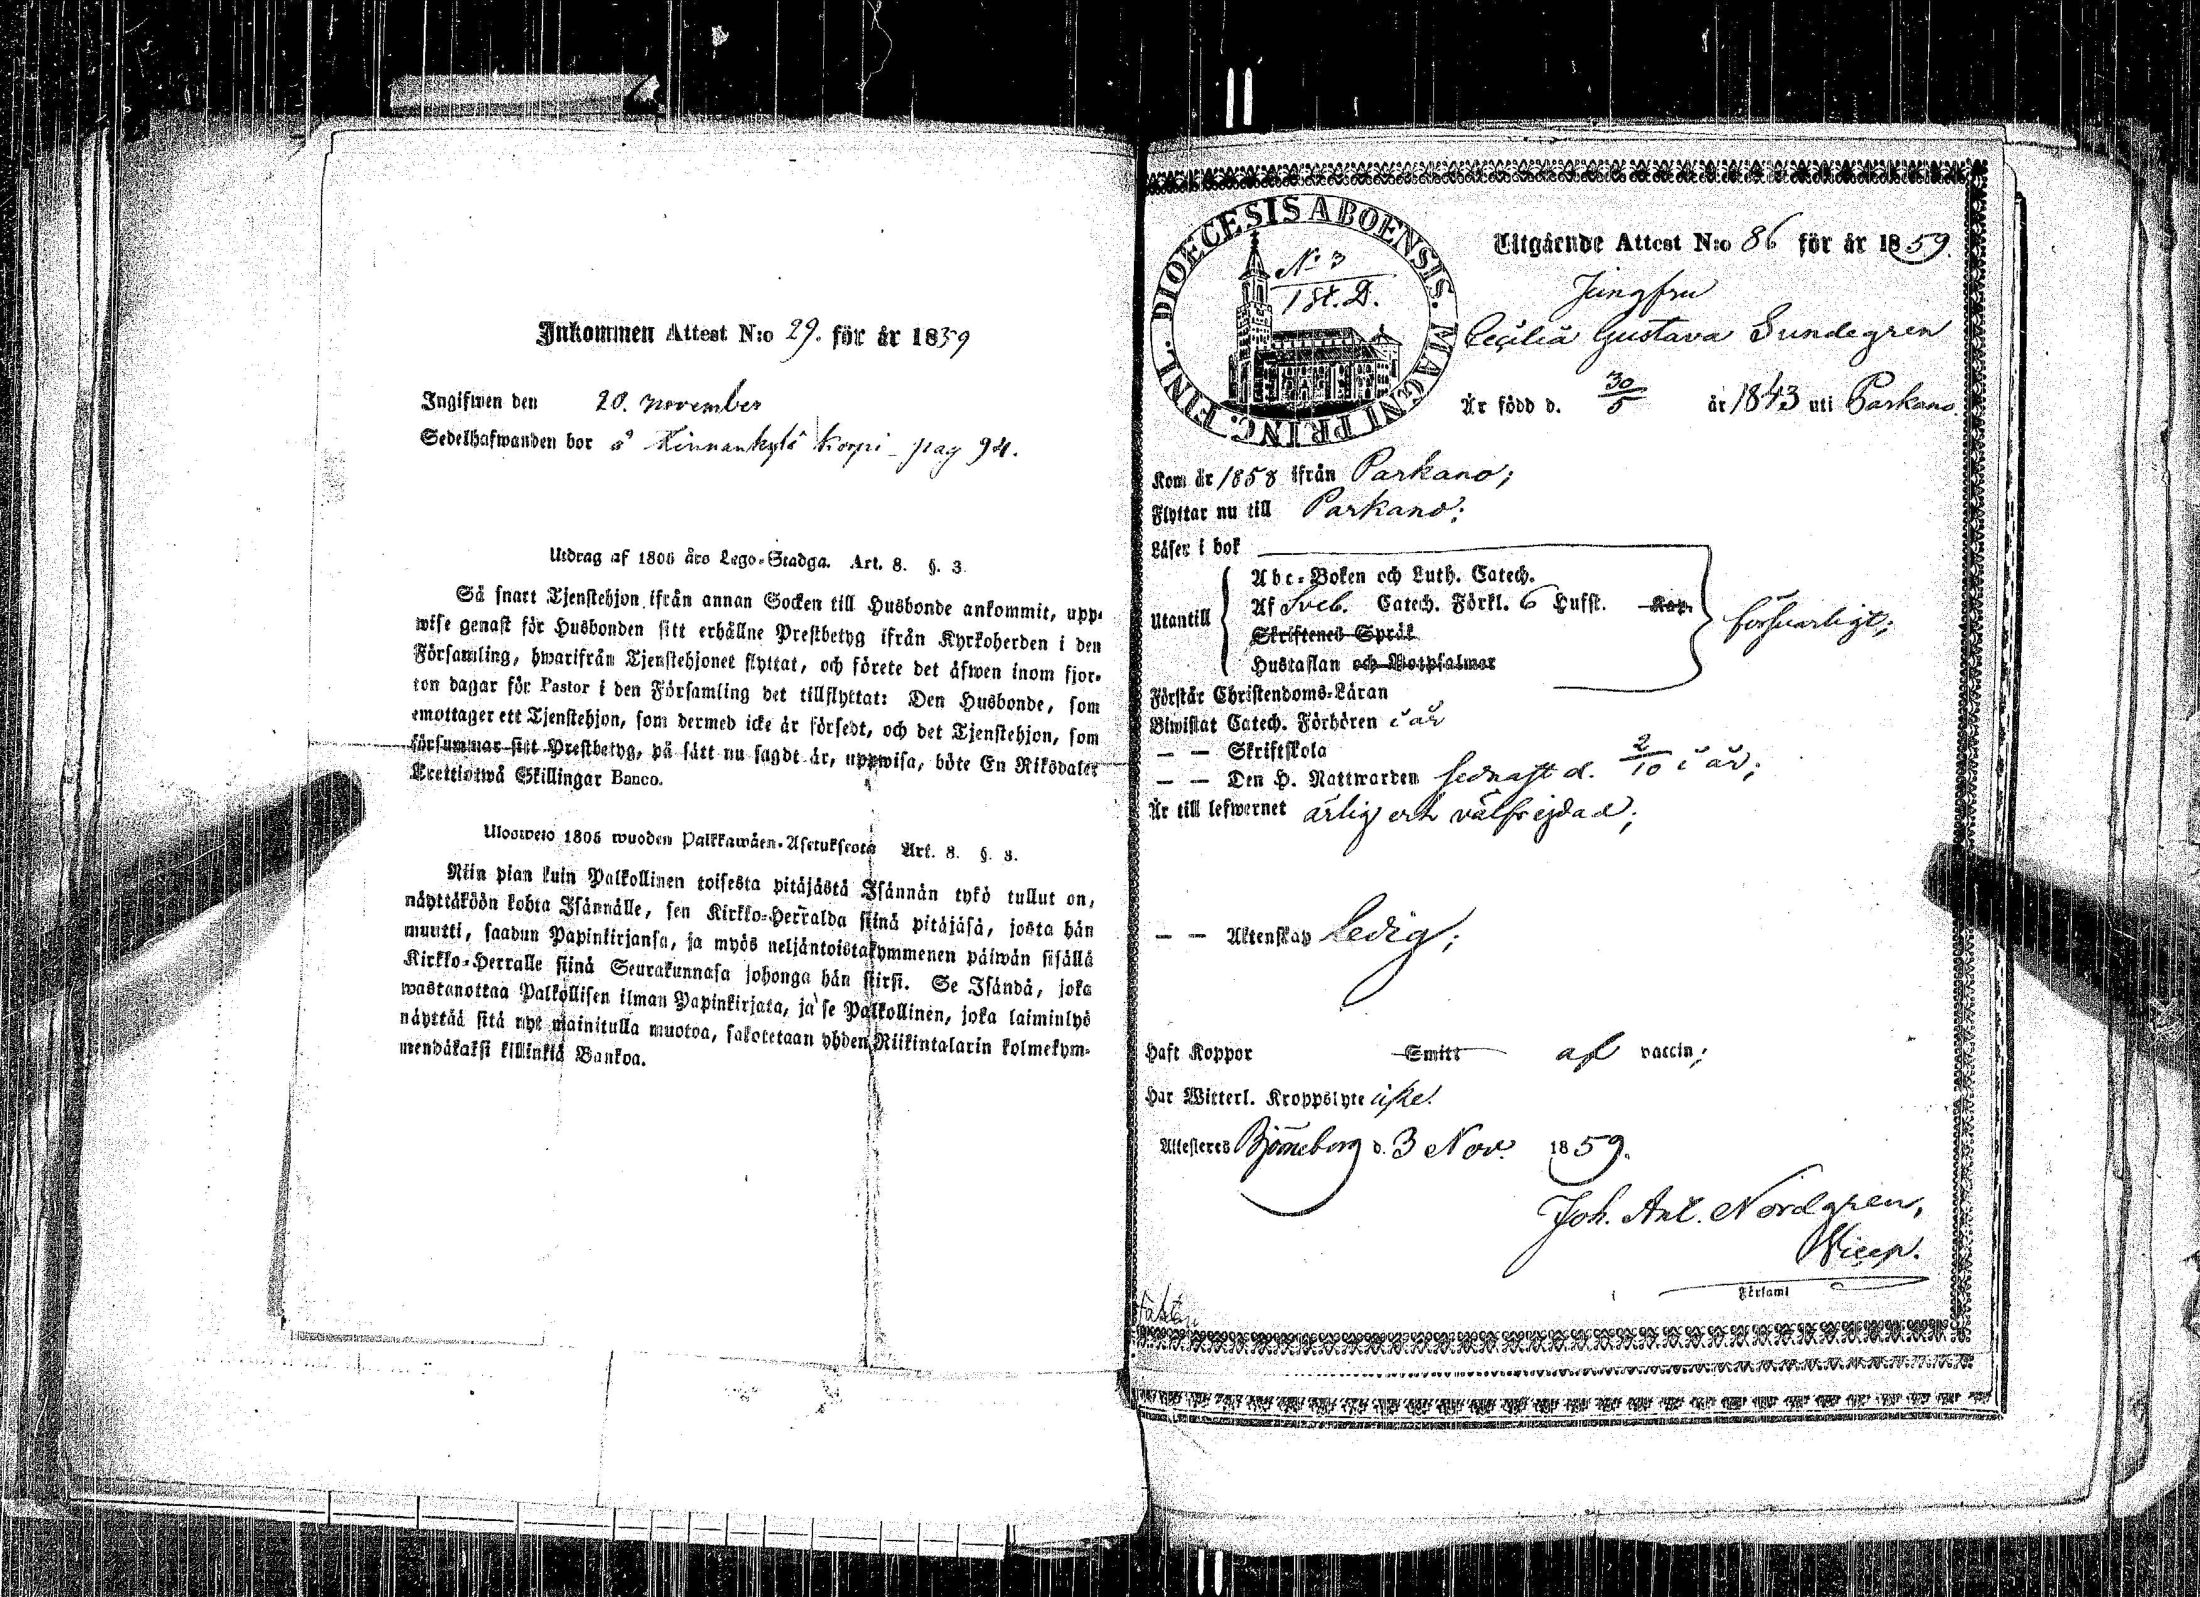 Inkommen Attest N:o 29. för år 1859
Ingifwen den 20. november
Sedelhafwanden bor å Kinnankylä Korpi - pag 94.
Utdrag af 1805 års Lego-Stadga. Art. 8. §. 3
Så snart Tjenstehjon ifrån annan Socken till Husbonde ankommit, upp-
wise genast för Husbonden sitt erhållne Prestbetyg ifrån Kyrkoherden i den
Församling, hwarifrån Tjenstehjonet flyttat, och förete det äfwen inom fjor-
ton dagar för Pastor i den Församling det tillflyttat: Den Husbonde, som
emottager ett Tjenstehjon, som dermed icke är försedt, och det Tjenstehjon, som
försummar sitt Prestbetyg, på sätt nu sagdt är, uppwisa, böte En Riksdaler
Trettiotwå Skillingar Banco.
Uloswето 1805 wuoden Palkkawäen-Asetuksesta Art. 8. §. 3.
Niin pian kuin Palkollinen toisesta pitäjästä Isännän tykö tullut on,
näyttäköön kohta Isännälle, sen Kirkko-Herralda siinä pitäjäsä, josta hän
muutti, saadun Papinkirjansa, ja myös neljäntoistakymmenen päiwän sisällä
Kirkko-Herralle siinä Seurakunnasa johonga hän siirsi. Se Isändä, joka
wastanottaa Palkollisen ilman Papinkirjata, ja se Palkollinen, joka laiminlyö
näyttää sitä nyt mainitulla muotoa, sakotetaan yhden Riikintalarin kolmekym-
mendäkaksi killinkiä Bankoa.
DIOECESIS ABOENSIS. MAGNI PRINC. FINL.
No 3
1 st. D.
Utgående Attest N:o 86 för år 1859.
Jungfru
Cecilia Gustava Sundegren
Är född d. 30/5 år 1843 uti Parkano.
Kom år 1858 ifrån Parkano;
Flyttar nu till Parkano;
Läser i bok
Abc-Boken och Luth. Catech.
Utantill Af Sveb. Catech. Förkl. 6 Hufst. Kap. försvarligt;
Skriftenes Språk
Hustaflan och Botpsalmer
Förstår Christendoms-Läran
Biwistat Catech. Förhören i år
— — Skriftskola
— — Den H. Nattwarden sednast d. 2/10 i år;
Är till lefwernet ärlig och välfrejdad;
— — Äktenskap Ledig;
Haft Koppor Smitt af vaccin;
Har Witterl. Kroppslyte icke.
Attesteres Björneborg d. 3 Nov. 1859.
Joh. Ant. Nordgren,
Vicep.
i Församl